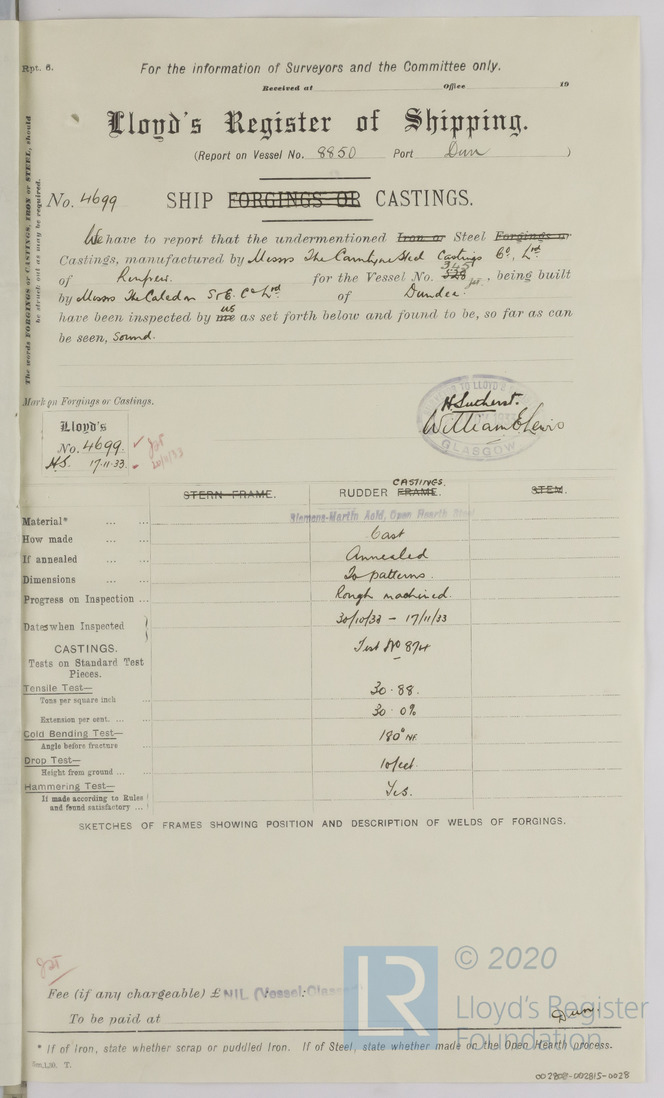 Rpt. 6.
For the information of Surveyors and the Committee only.
Received at Office 19
Lloyd's Register of Shipping.
(Report on Vessel No. 8850 Port Dun )
No. 4699 SHIP FORGINGS OR CASTINGS.
The words FORGINGS or CASTINGS, IRON or STEEL, should be struck out as may be required.
We have to report that the undermentioned Iron or Steel Forgings or
Castings, manufactured by Messrs The Carntyne Steel Castings Co, Ltd
of Renfrew. for the Vessel No. 345 , being built
by Messrs The Caledon S & E. Co Ltd of Dundee.
have been inspected by us me as set forth below and found to be, so far as can
be seen, sound.
Mark on Forgings or Castings.
Lloyd's
No. 4699.
H.S. 17.11.33.
H Sutherst.
William E Lewis
GLASGOW
STERN FRAME. RUDDER CASTINGS. FRAME. STEM.
Material* ... ... Siemens-Martin Acid, Open Hearth Steel
How made ... ... Cast
If annealed ... ... Annealed
Dimensions ... ... To patterns.
Progress on Inspection ... Rough machined.
Dates when Inspected 30/10/33 - 17/11/33
CASTINGS. Test No 874
Tests on Standard Test
Pieces.
Tensile Test—
Tons per square inch ... 30.88.
Extension per cent. ... ... 30.0%
Cold Bending Test—
Angle before fracture 180° NF.
Drop Test—
Height from ground ... ... 10 feet.
Hammering Test—
If made according to Rules Yes.
and found satisfactory ...
SKETCHES OF FRAMES SHOWING POSITION AND DESCRIPTION OF WELDS OF FORGINGS.
Fee (if any chargeable) £ NIL (Vessel Classed
To be paid at Dun.
* If of Iron, state whether scrap or puddled Iron. If of Steel, state whether made on the Open Hearth process.
© 2020
LR
Lloyd's Register
Foundation
002808-002815-0028